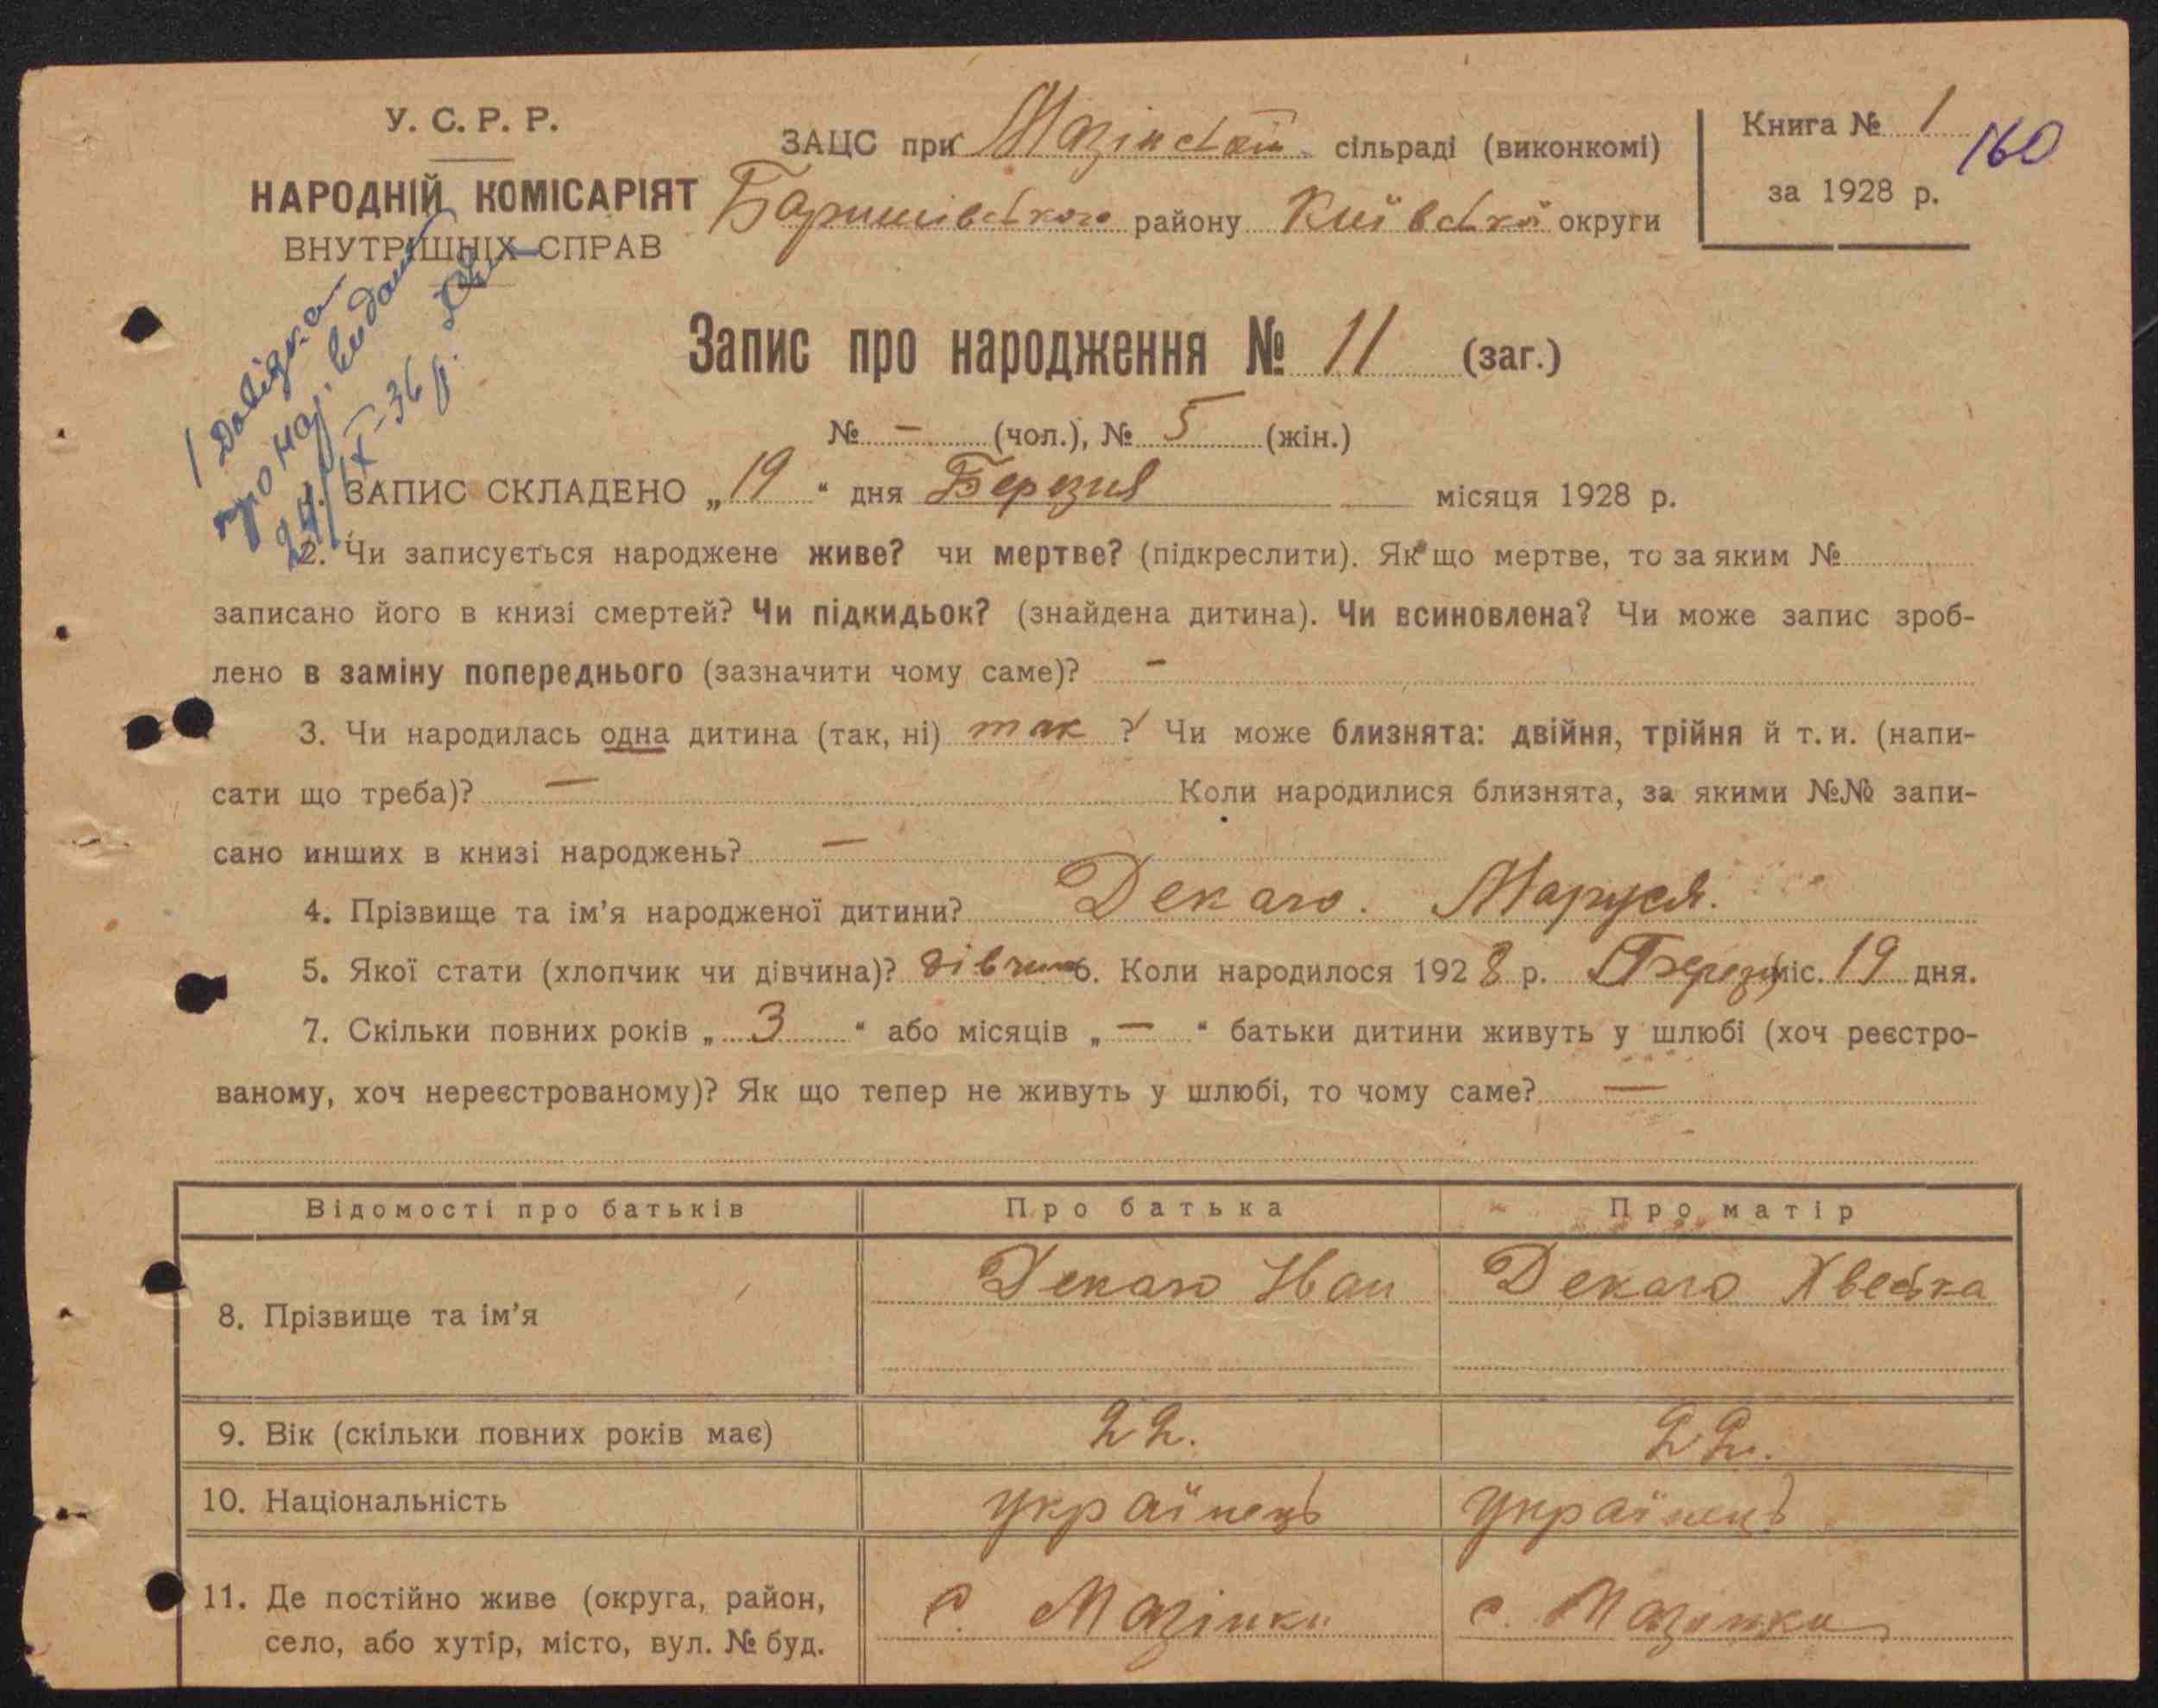 У. С. Р. Р.
НАРОДНІЙ КОМІСАРІЯТ
ВНУТРІШНІХ СПРАВ
ЗАЦС при Мазінській сільраді (виконкомі)
Баришівського району Київської округи
Книга № 1
160
за 1928 р.
Довідка
про нар. видана
24/IX-36 р.
Запис про народження № 11 (заг.)
№ - (чол.), № 5 (жін.)
1. ЗАПИС СКЛАДЕНО „19“ дня Березня місяця 1928 р.
2. Чи записується народжене живе? чи мертве? (підкреслити). Як що мертве, то за яким №
записано його в книзі смертей? Чи підкидьок? (знайдена дитина). Чи всиновлена? Чи може запис зроб-
лено в заміну попереднього (зазначити чому саме)? -
3. Чи народилась одна дитина (так, ні) так ? Чи може близнята: двійня, трійня й т. и. (напи-
сати що треба)? — Коли народилися близнята, за якими №№ запи-
сано инших в книзі народжень? —
4. Прізвище та ім'я народженої дитини? Декало. Маруся.
5. Якої стати (хлопчик чи дівчина)? дівчина 6. Коли народилося 1928 р. Березня міс. 19 дня.
7. Скільки повних років „ 3 “ або місяців „ — “ батьки дитини живуть у шлюбі (хоч реєстро-
ваному, хоч нереєстрованому)? Як що тепер не живуть у шлюбі, то чому саме? —
Відомості про батьків Про батька Про матір
8. Прізвище та ім'я Декало Іван Декало Хвеська
9. Вік (скільки повних років має) 22. 22.
10. Національність українець українець
11. Де постійно живе (округа, район,
село, або хутір, місто, вул. № буд. с. Мазінки с. Мазінки